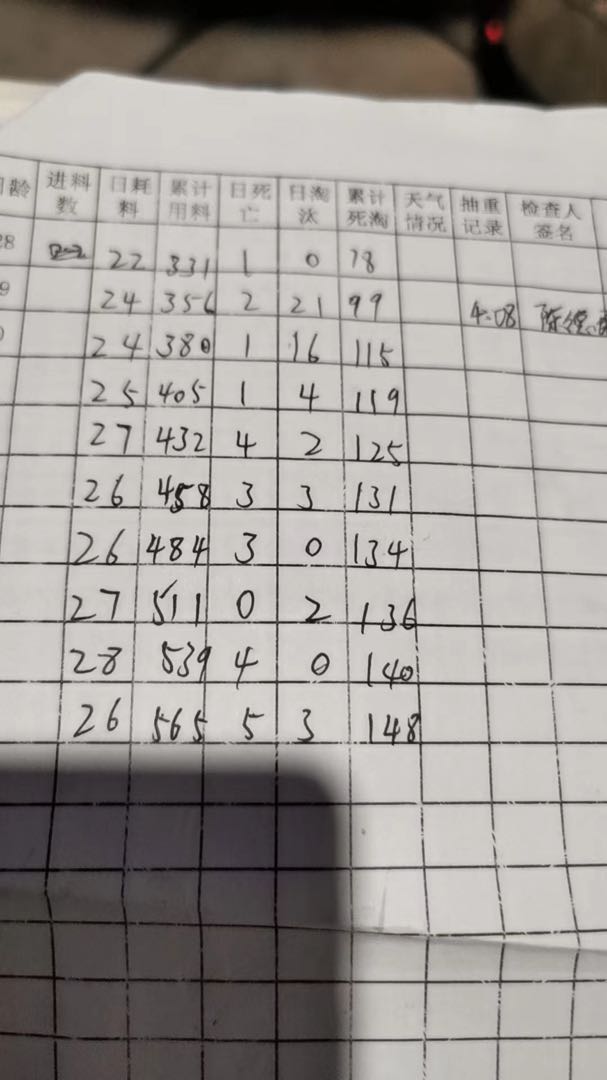 日龄 进料数 日耗料 累计用料 日死亡 日淘汰 累计死淘 天气情况 抽重记录 检查人签名
28 22 331 1 0 78
9 24 356 2 21 99 4.08
0 24 380 1 16 115
25 405 1 4 119
27 432 4 2 125
26 458 3 3 131
26 484 3 0 134
27 511 0 2 136
28 539 4 0 140
26 565 5 3 148